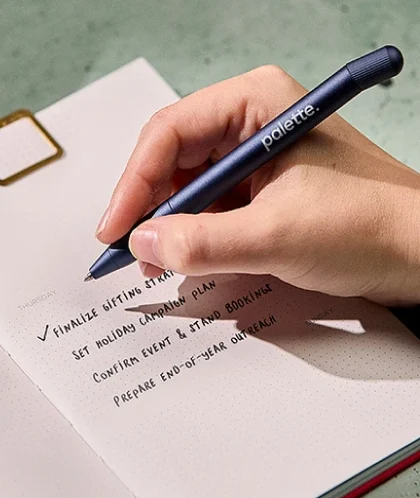 palette.
THURSDAY
✓ FINALIZE GIFTING STRA
SET HOLIDAY CAMPAIGN PLAN
CONFIRM EVENT & STAND BOOKINGS
PREPARE END-OF-YEAR OUTREACH